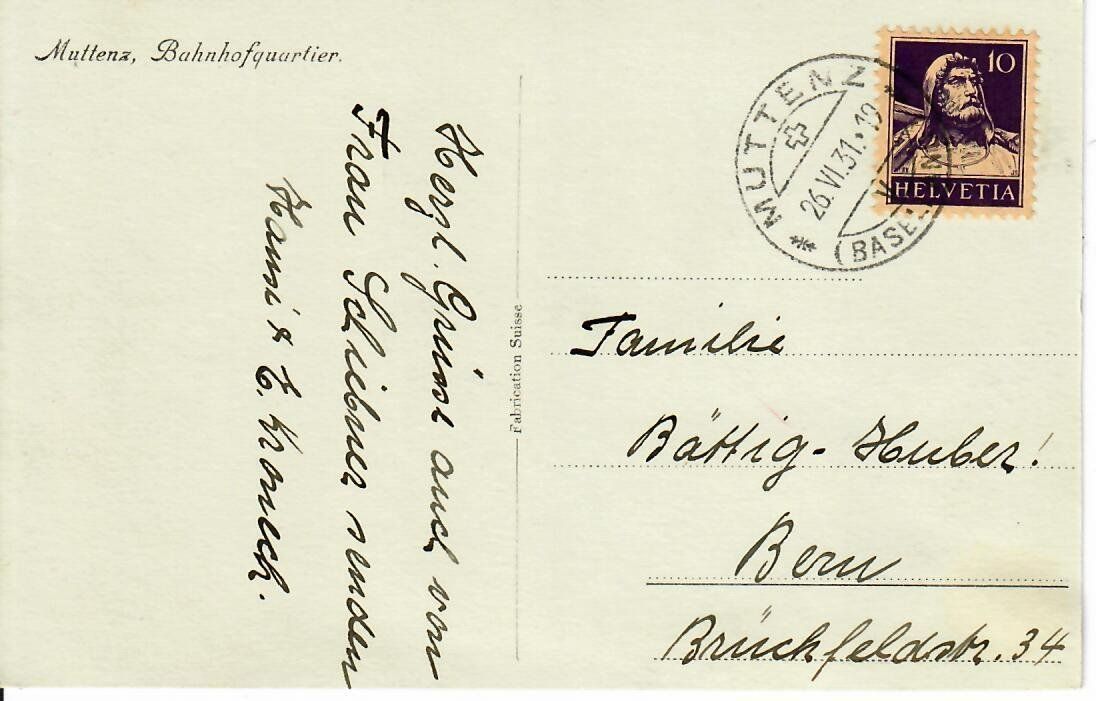 Muttenz, Bahnhofquartier.
Herzl. Grüsse auch von
Frau Schibner senden
Hansi & E.
Fabrication Suisse
10
HELVETIA
MUTTENZ
26.VI.31.19
(BASELLAND)
Familie
Bättig-Huber!
Bern
Brückfeldstr. 34